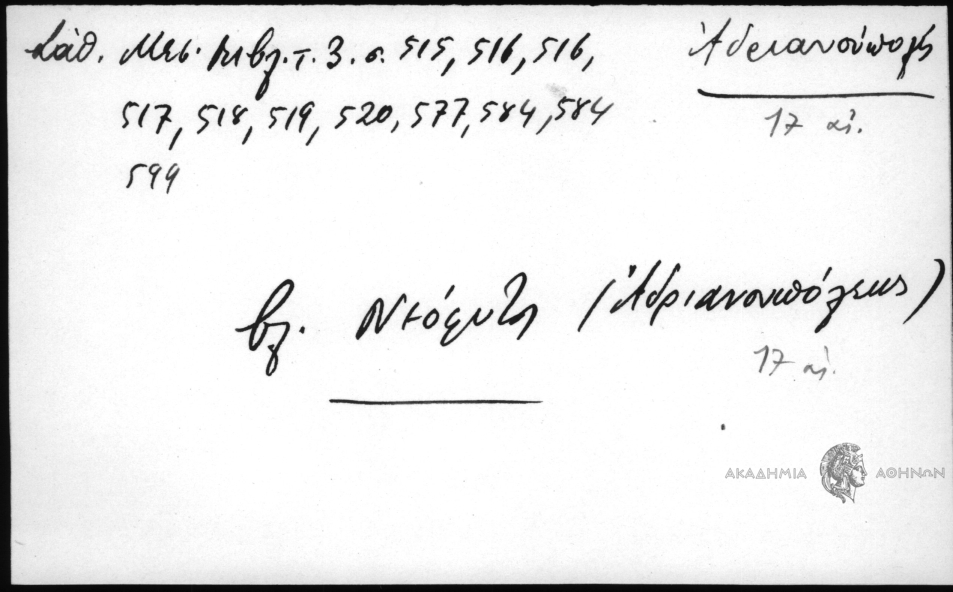 Σάθ. Μεσ. Βιβλ. τ. 3. σ. 515, 516, 516,
Ἀδριανούπολις
517, 518, 519, 520, 577, 584, 584
17 αἰ.
599
βλ. Νεόφυτος (Ἀδριανουπόλεως)
17 αἰ.
ΑΚΑΔΗΜΙΑ ΑΘΗΝΩΝ